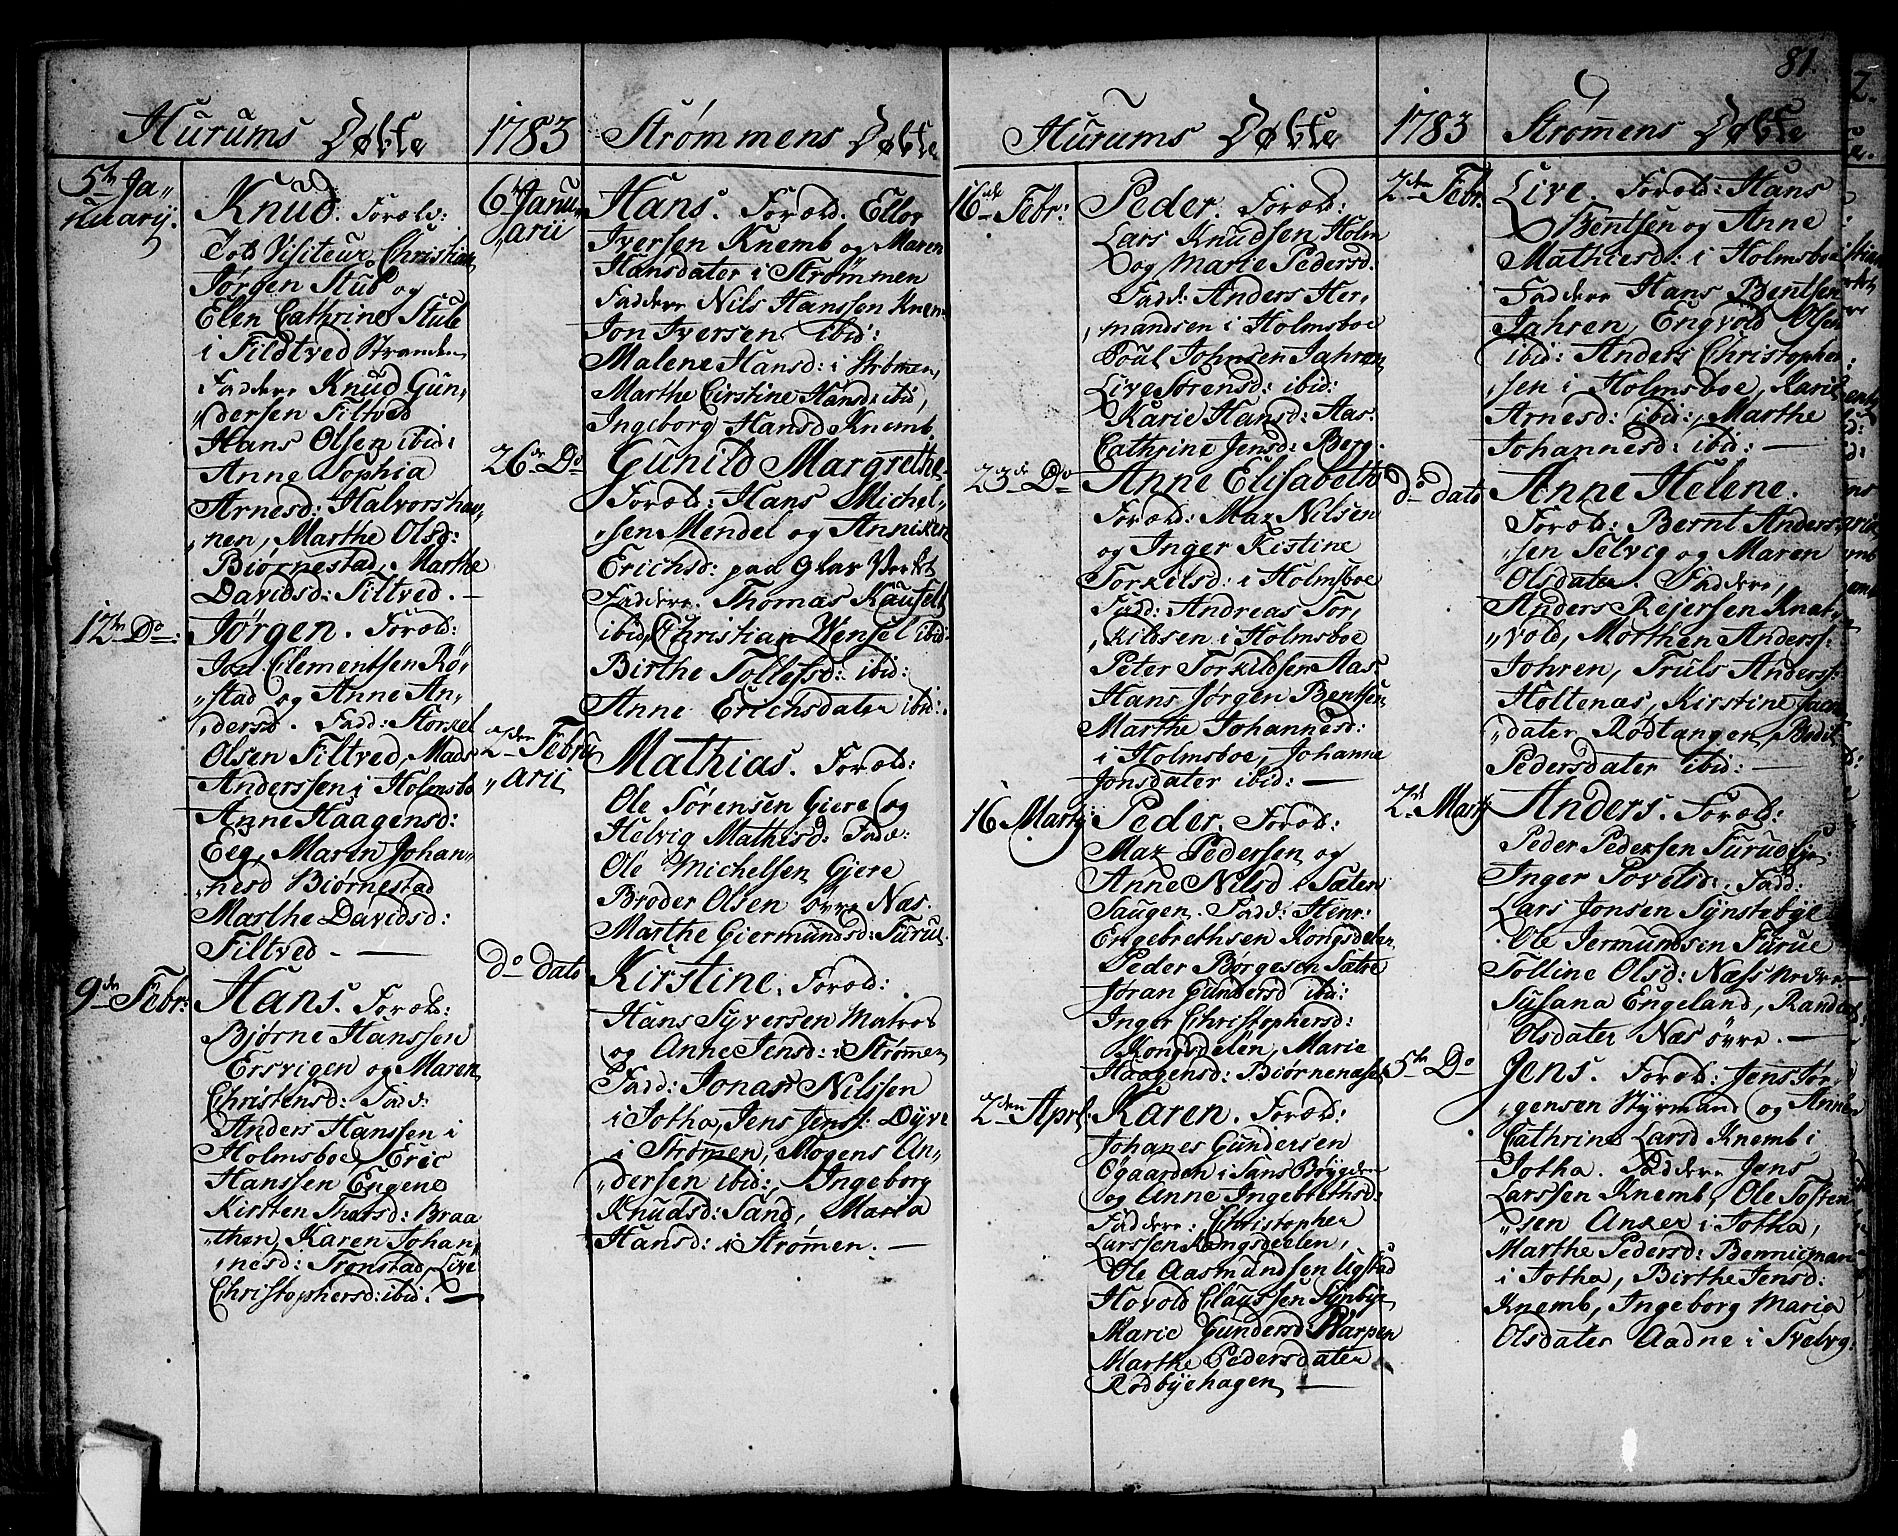 81.
Hurums Døbte
5te Ja-
nuarij.
Knud. Foræld:
Told Visiteur Christian
Jørgen Stub og
Elen Cathrine Stub
i Fildtved Stranden
Faddere Knud Gun-
„dersen Filtved
Hans Olsen ibid:
Anne Sophia
Arnesd: Halvorshav-
„nen, Marthe Olsd:
Biørnestad, Marthe
Davidsd: Filtved. –
12te Do:
Jørgen. Foræld:
Jon Clementsen Rø-
„stad og Anne An-
„dersd. Fadd: Storkel
Olsen Filtved, Mads
Anderssen i Holmsbo
Anne Haagensd:
Eeg, Maren Johan-
„nesd Biørnestad
Marthe Davidsd:
Filtved. –
9de Febr:
Hans. Foræld:
Bjørne Hanssen
Ersvigen og Maren
Christensd: Fadd:
Anders Hanssen i
Holmsboe, Eric
Hanssen Engene
Kirsten Thorsd: Braa
„then, Karen Johan-
„nesd: Tronstad, Live
Christophersd: ibid: –
1783 Strømmens Døbte
6te Janu-
„arii
Hans. Foræld. Ellor
Iversen Knemb og Maren
Hansdater i Strømmen
Faddere Nils Hanssen Knem:
Jon Iversen ibid:
Malene Hansd: i Strømen,
Marthe Cirstine Hansd: ibid,
Ingeborg Hansd Knemb,
26de Do
Gunild Margrethe
Foræld: Hans Michel-
„sen Mendel og Anniken
Erichsd: paa Glas Verket
Faddere. Thomas Kaufeldt
ibid, Christian Wensel ibid:
Birthe Tollefsd: ibid:
Anne Erichsdater ibid:
2den Febru
„arii
Mathias. Foræld:
Ole Sørensen Giere og
Helvig Mathisd: Fadd:
Ole Michelsen Gjere
Broder Olsen øvre Næs.
Marthe Giermundsd: Furue.
do dato
Kirstine. Foræld:
Hans Syversen Matros
og Anne Jensd: i Strømen
Fadd: Jonas Nilssen
i Totha, Jens Jenss: Dyve
i Strømen, Mogens An-
„dersen ibid:, Ingeborg
Knudsd: Sand, Maria
Hansd: i Strømen. –
Hurums Døbte
16de Febr:
Peder. Foræld:
Lars Knudsen Holm
og Marie Pedersd.
Fadd: Anders Her-
„mandsen i Holmsboe
Poul Johnsen Jahren
Live Sørensd: ibid:
Karie Hansd: Aas:
Cathrine Jensd: Berg.
23de Do
Anne Elisabeth
Foræld: Maz Nilsen
og Inger Kistine
Torkilsd: i Holmsboe
Fadd: Andreas Tor-
„kildsen i Holmsboe
Peter Torkildsen Aas
Hans Jørgen Bentsen
Marthe Johannesd:
i Holmsboe, Johanne
Jonsdater ibid: –
16 Martij
Peder. Foræld:
Maz Pedersen og
Anne Nilsd i Sæten
Saugen. Fadd: Heinr:
Engebrethsen Kongsdelen
Peder Børgesen Sætre
Jøran Gundersd ibid:
Inger Christophersd:
Kongsdelen, Marie
Haagensd: Biørnenæset
2den Apri:
Karen. Foræld:
Johanes Gundersen
Ogaarden i Sans Brygden
og Anne Ingebrethsd:
Faddere: Christopher
Larssen Kongsdeelen,
Ole Aasmundsen Ugstad
Hovold Claussen Synbye
Marie Gundersd: Warpen
Marthe Pedersdater
Rødbyehagen –
1783 Strømens Døbte
2den Febr:
Live. Foræld: Hans
Bentsen og Anne
Mathiesd: i Holmsboe
Faddere Hans Bentsen
Jahren, Engvold Olsen
ibid: Anders Christopher
„sen i Holmsboe, Karie
Arnesd: ibid:, Marthe
Johannesd: ibid: –
do dato
Anne Helene.
Foræld: Bernt Anders-
„sen Selvig og Maren
Olsdater. Faddere,
Anders Rejersen Knat-
„vold, Morthen Anderss:
Johren, Truls Anderss:
Holtenæs, Kirstine Jacobs
„dater Rødtangen, Bodil
Pedersdater ibid: –
2de Martj
Anders. Foræld:
Peder Pedersen Furue Eje:
Inger Povelsd: Fadd:
Lars Jonsen Synstebye
Ole Jermundsen Furue
Tolline Olsd: Næss nedre
Susana Engeland, Randi
Olsdater Næs øvre. –
5te Do
Jens. Foræld: Jens Jør-
„gensen Styrmand og Anne
Cathrine Larsd Knemb i
Totha. Faddere Jens
Larssen Knemb, Ole Tosten
„sen Anker i Totha,
Marthe Pedersd: Bennicman
i Totha, Birthe Jensd:
Knemb, Ingeborg Maria
Olsdater Aadne i Svelvig.